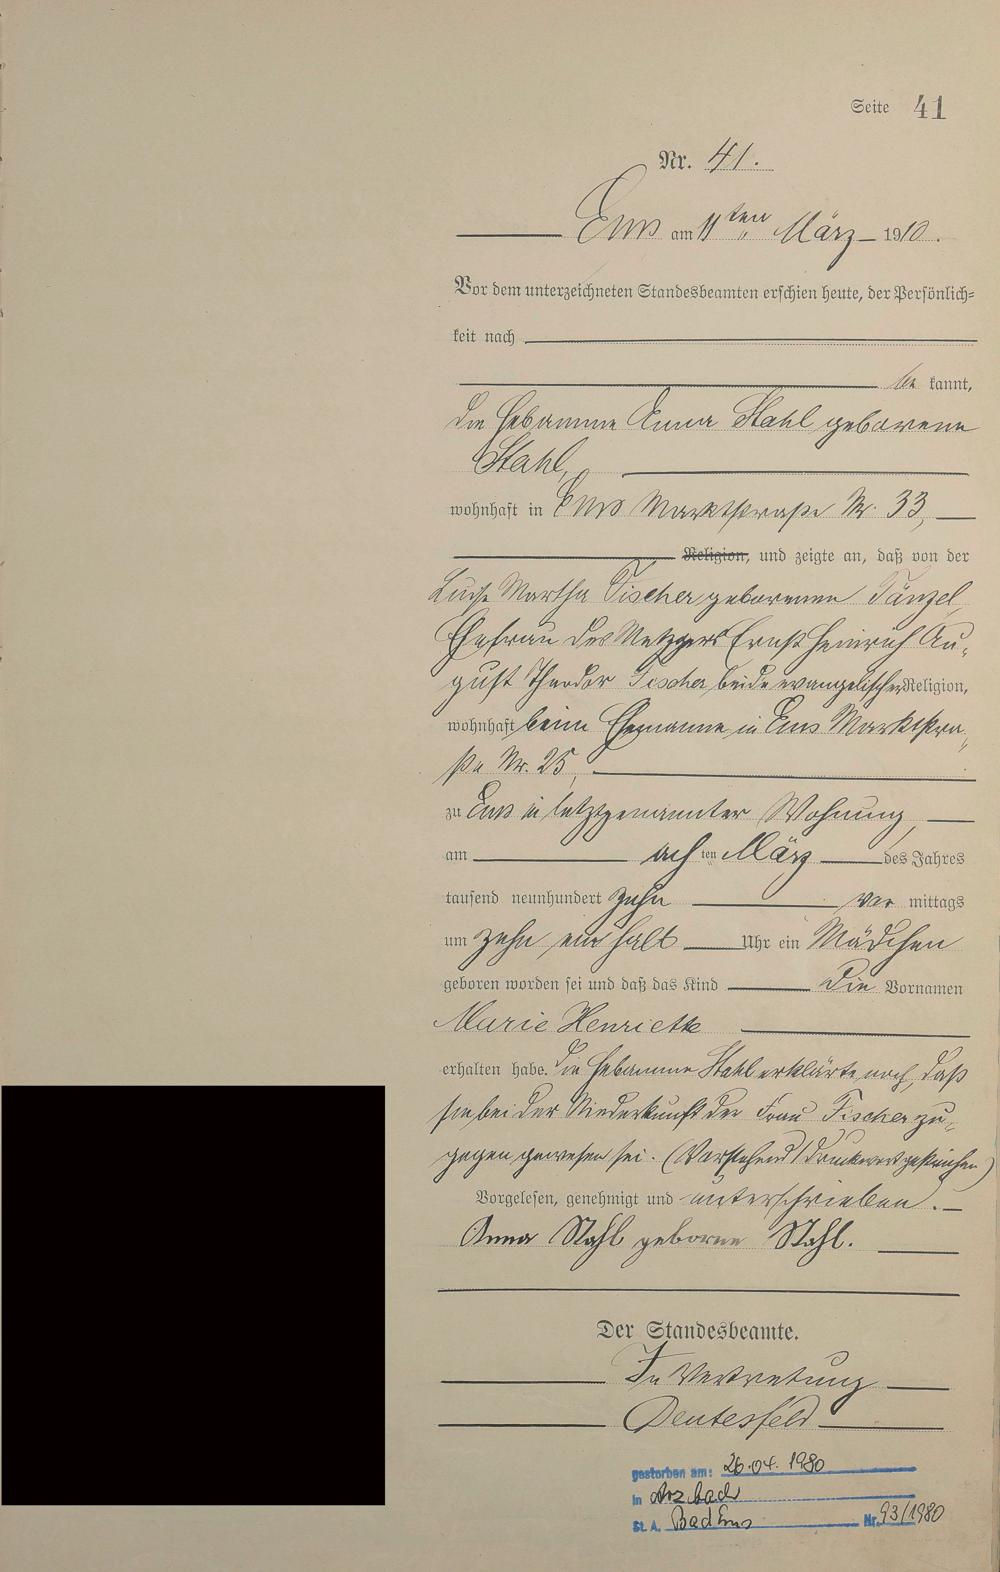 Seite 41
Nr. 41.
Ems am 11ten März 1910.
Vor dem unterzeichneten Standesbeamten erschien heute, der Persönlich-
keit nach
be kannt,
die Hebamme Anna Stahl geborene
Stahl,
wohnhaft in Ems Marktstraße Nr. 33,
Religion, und zeigte an, daß von der
Luise Martha Fischer geborenen Tänzel,
Ehefrau des Metzgers Ernst Heinrich Au-
gust Theodor Fischer, beide evangelischer Religion,
wohnhaft beim Ehemanne in Ems Marktstra-
ße Nr. 25,
zu Ems in letztgenannter Wohnung,
am achten März des Jahres
tausend neunhundert zehn vor mittags
um zehn ein halb Uhr ein Mädchen
geboren worden sei und daß das Kind die Vornamen
Marie Henriette
erhalten habe. Die Hebamme Stahl erklärte noch, daß
sie bei der Niederkunft der Frau Fischer zu-
gegen gewesen sei. (Vorstehend 1 Druckwort gestrichen)
Vorgelesen, genehmigt und unterschrieben.
Anna Stahl geborne Stahl.
Der Standesbeamte.
In Vertretung
gestorben am: 26.04.1980
in Arzbach
St. A. Bad Ems Nr. 93/1980